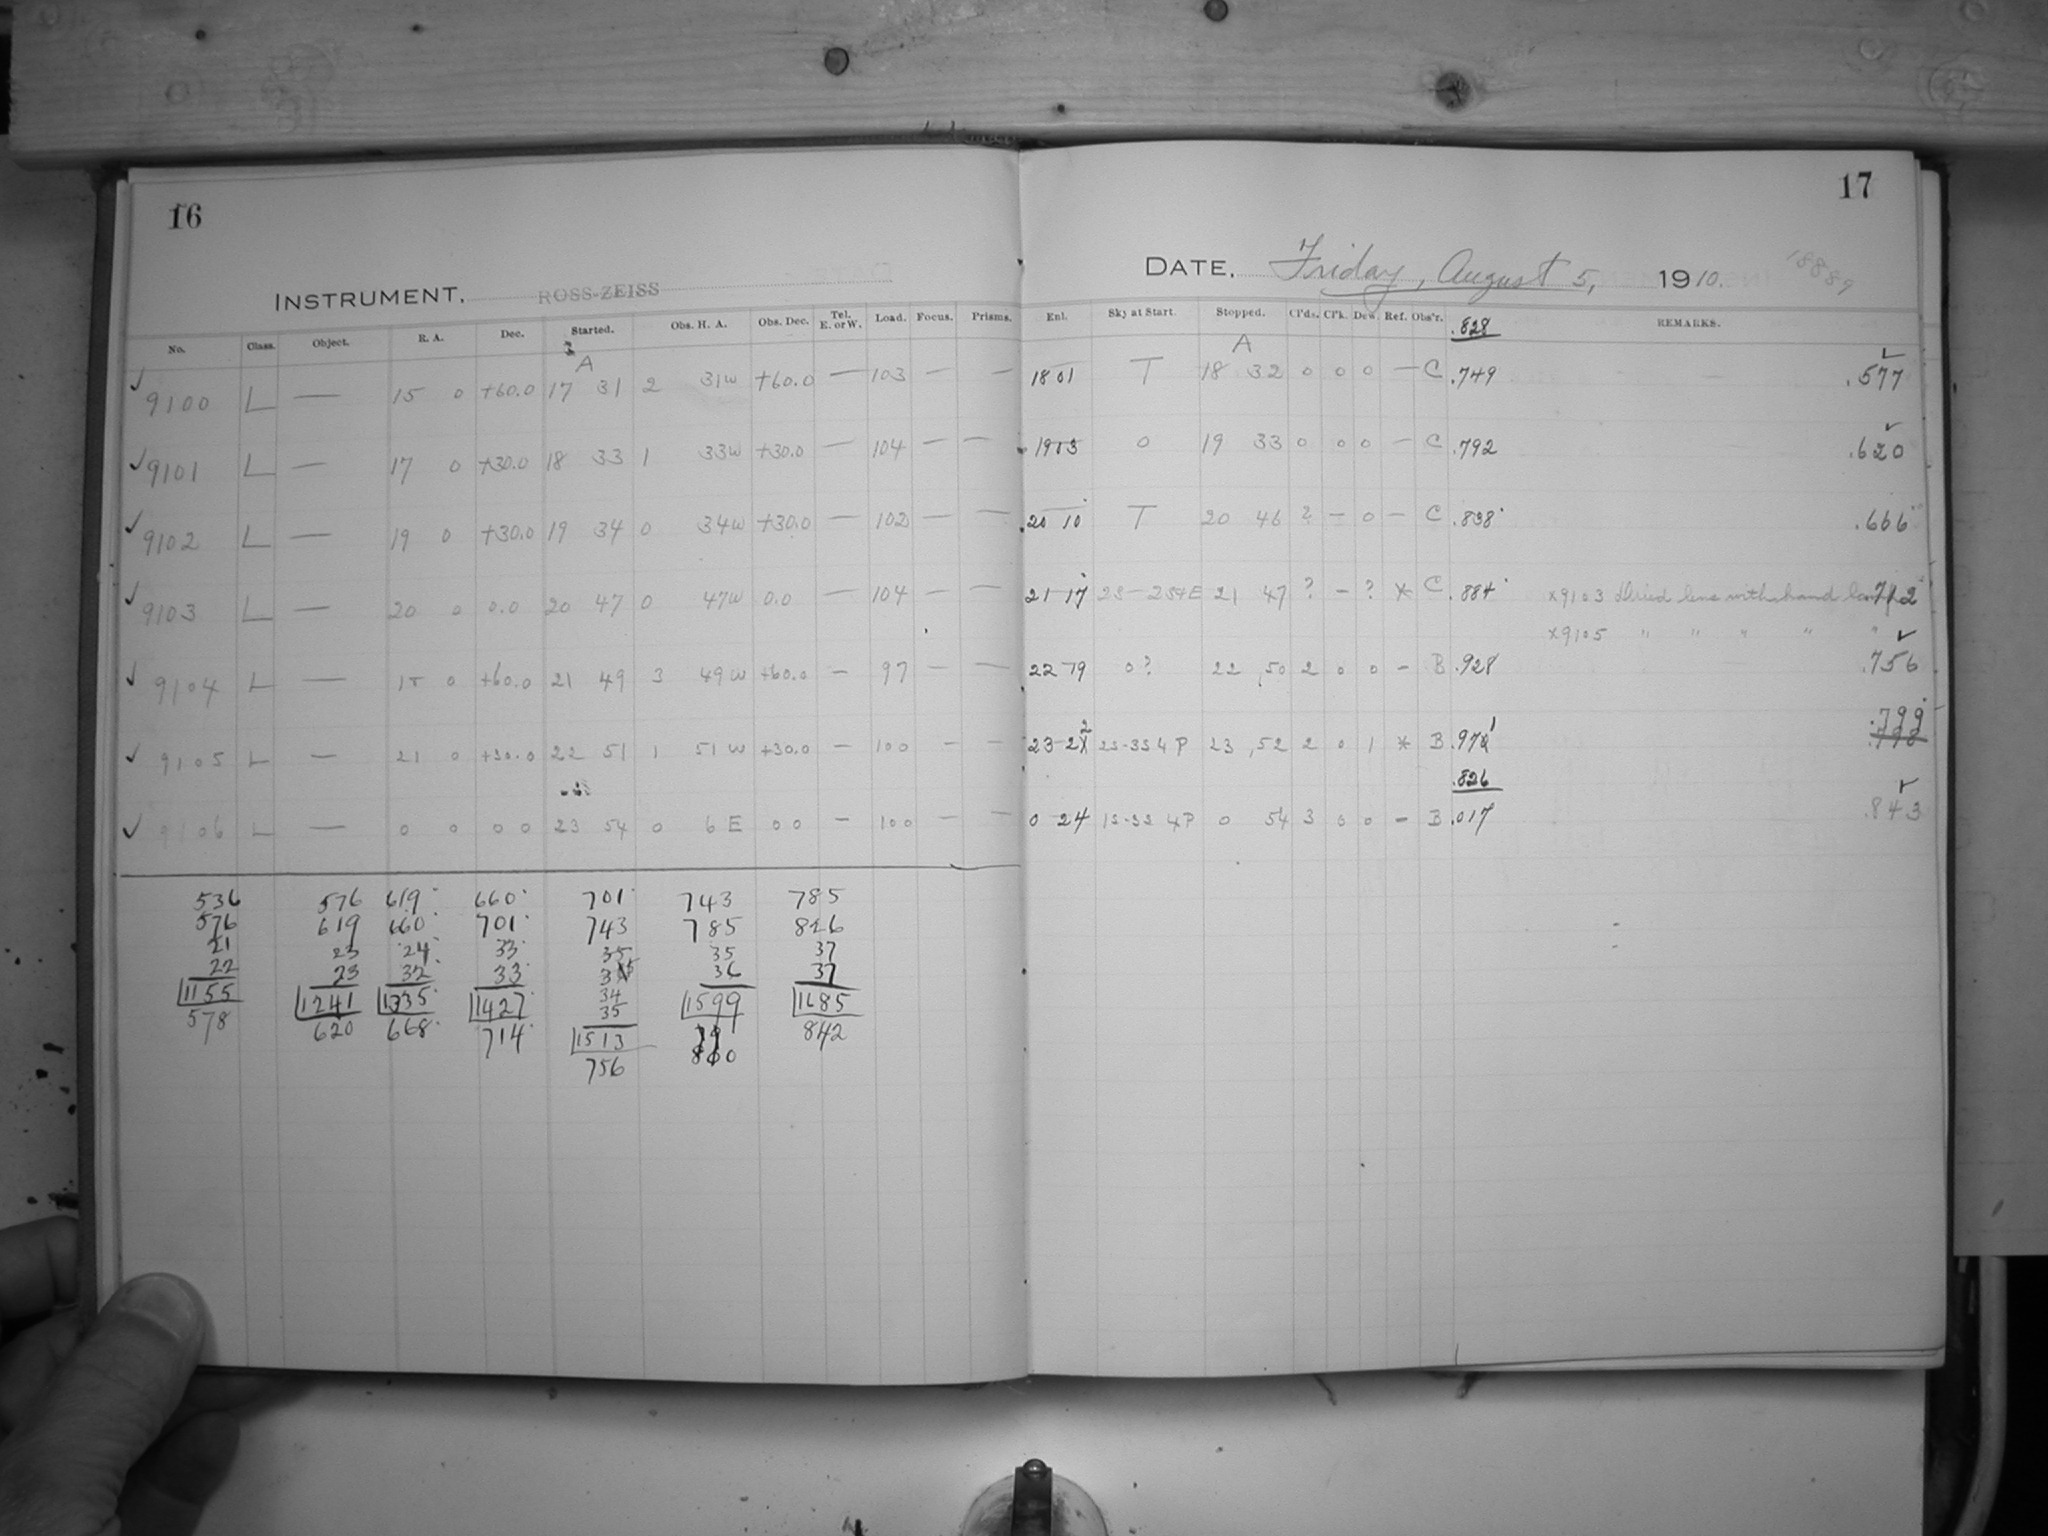 16
INSTRUMENT, ROSS-ZEISS
No. Class. Object. R. A. Dec. Started. Obs. H. A. Obs. Dec. Tel. E. or W. Load. Focus. Prisms.
A
✓ 9100 L — 15 0 +60.0 17 31 2 31w +60.0 — 103 — —
✓ 9101 L — 17 0 +30.0 18 33 1 33w +30.0 — 104 — —
✓ 9102 L — 19 0 +30.0 19 34 0 34w +30.0 — 102 — —
✓ 9103 L — 20 0 0.0 20 47 0 47w 0.0 — 104 — —
✓ 9104 L — 15 0 +60.0 21 49 3 49w +60.0 — 97 — —
✓ 9105 L — 21 0 +30.0 22 51 1 51w +30.0 — 100 — —
✓ 9106 L — 0 0 0 0 23 54 0 6 E 0 0 — 100 — —
536 576 619 660 701 743 785
576 619 660 701 743 785 826
21 23 24 33 35 35 37
22 23 32 33 36 37
34
35
1155 1241 1335 1427 1513 1599 1685
578 620 668 714 756 800 842
17
DATE, Friday, August 5, 1910. 18889
Enl. Sky at Start. Stopped. Cl'ds. Cl'k. Dew. Ref. Obs'r. .828 REMARKS.
A
18 01 T 18 32 0 0 0 — C .749 .577 ✓
19 03 0 19 33 0 0 0 — C .792 .620 ✓
20 10 T 20 46 ? — 0 — C .838 .666
21 17 2S — 2S4E 21 47 ? — ? * C .884 x9103 Dried lens with hand lamp .712
x9105 " " " " "
22 19 0? 22 50 2 0 0 — B .928 .756 ✓
.799
23 22 2S-3S4P 23 52 2 0 1 * B .971
.826
0 24 1S-3S 4P 0 54 3 0 0 — B .017 .843 ✓